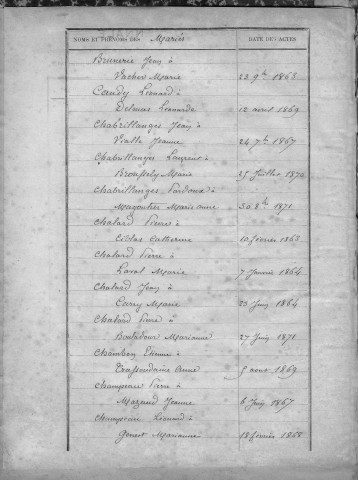 NOMS ET PRÉNOMS DES Mariés
DATE DES ACTES
Brunerie Jean à
Vacher Marie 23 9bre 1865
Caudy Léonard à
Delmas Léonarde 12 avril 1869
Chabrillanges Jean à
Vialle Jeanne 24 7bre 1867
Chabrillanges Laurent à
Broussely Marie 25 Juillet 1870
Chabrillanges Pardoux à
Marie anne 30 8bre 1871
Chalard Pierre à
Catherine 10 février 1863
Chalard Pierre à
Laval Marie 7 Janvier 1864
Chalard Jean à
Carry Marie 23 Juin 1864
Chalard Pierre à
Boutadour Marianne 27 Juin 1871
Chambon Etienne à
Anne 5 aout 1869
Champeaux Pierre à
Mazaud Jeanne 6 Juin 1867
Champeaux Léonard à
Genest Marianne 18 février 1868